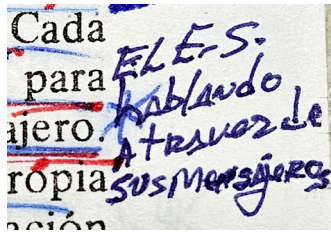 Cada
para
ajero.
ropia
ación
EL E.S.
hablando
Atravez de
sus Mensajeros